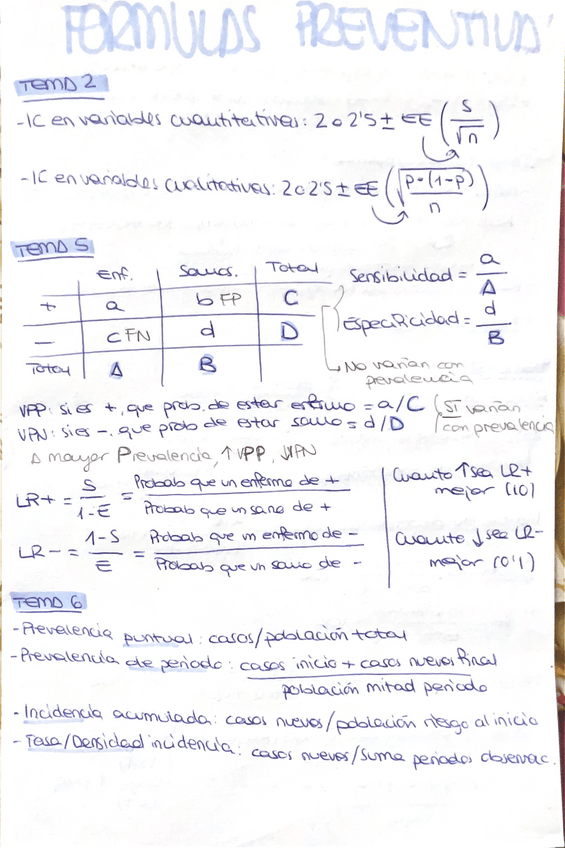 FORMULAS PREVENTIVA
TEMA 2
- IC en variables cuantitativas: 2 o 2'5 ± EE (s/√n)
- IC en variables cualitativas: 2 o 2'5 ± EE (√p·(1-p)/n)
TEMA 5
Enf. Sanos. Total
+ a b FP C
- c FN d D
Total A B
Sensibilidad = a/A
Especificidad = d/B
No varían con
pevalencia
VPP: si es +, que prob. de estar enfermo = a/C
VPN: si es -. que prob de estar sano = d/D
SI varían
con prevalencia
A mayor Prevalencia, ↑VPP, ↓VPN
LR+ = S/1-E = Probab que un enfermo de +/Probab que un sano de +
Cuanto ↑ sea LR+
mejor (10)
LR- = 1-S/E = Probab que un enfermo de -/Probab que un sano de -
Cuanto ↓ sea LR-
mejor (0'1)
TEMA 6
- Prevalencia puntual: casos/población total
- Prevalencia de periodo: casos inicio + casos nuevos final/población mitad periodo
- Incidencia acumulada: casos nuevos/población riesgo al inicio
- Tasa/Densidad incidencia: casos nuevos/suma periodos observac.